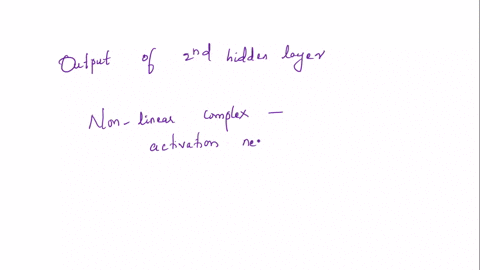 Output of 2nd hidden layer
Non-linear complex —
activation ne